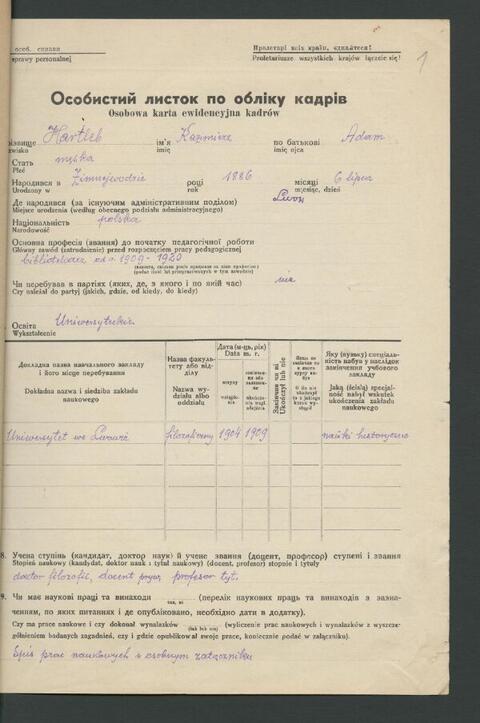 особ. справи
sprawy personalnej
Пролетарі всіх країн, єднайтеся!
Proletariusze wszystkich krajów łączcie się!
1
Особистий листок по обліку кадрів
Osobowa karta ewidencyjna kadrów
різвище Hartleb ім'я Kazimierz по батькові Adam
zwisko imię imię ojca
Стать męska
Płeć
Народився в Zimnejwodzie році 1886 місяці 6 lipca
Urodzony w rok miesiąc, dzień
Де народився (за існуючим адміністративним поділом) Lwów
Miejsce urodzenia (według obecnego podziału administracyjnego)
Національність polska
Narodowość
Основна професія (звання) до початку педагогічної роботи
Główny zawód (zatrudnienie) przed rozpoczęciem pracy pedagogicznej
bibliotekarz od r. 1909 - 1920
(вказати, скільки років працював за цим професією)
(podać ilość lat przepracowanych w tym zawodzie)
Чи перебував в партіях (яких, де, з якого і по який час) nie
Czy należał do partyj (jakich, gdzie, od kiedy, do kiedy)
Освіта Uniwersyteckie
Wykształcenie
Докладна назва навчального закладу і його місце перебування
Dokładna nazwa i siedziba zakładu naukowego
Назва факультету або відділу
Nazwa wydziału albo oddziału
Дата (м-ць, рік)
Data m. r.
вступу
Закінчив чи ні
Ukończył lub nie
Яку (вузьку) спеціальність набув у наслідок закінчення учбового закладу
Jaką (ścisłą) specjalność nabył wskutek ukończenia zakładu naukowego
Uniwersytet we Lwowie filozoficzny 1904 1909 nauki historyczne
8. Учена ступінь (кандидат, доктор наук) й учене звання (доцент, професор) ступені і звання
Stopień naukowy (kandydat, doktór nauk i tytuł naukowy) (docent, profesor) stopnie i tytuły
doktor filozofii, docent pryw, profesor tyt.
9. Чи має наукові праці та винаходи (перелік наукових праць та винаходів з зазна-
так, ні
ченням, по яких питаннях і де опубліковано, необхідно дати в додатку).
Czy ma prace naukowe i czy dokonał wynalazków (wyliczenie prac naukowych i wynalazków z wyszcze-
(tak lub nie)
gólnieniem badanych zagadnień, czy i gdzie opublikował swoje prace, koniecznie podać w załączniku).
Spis prac naukowych w osobnym załączniku